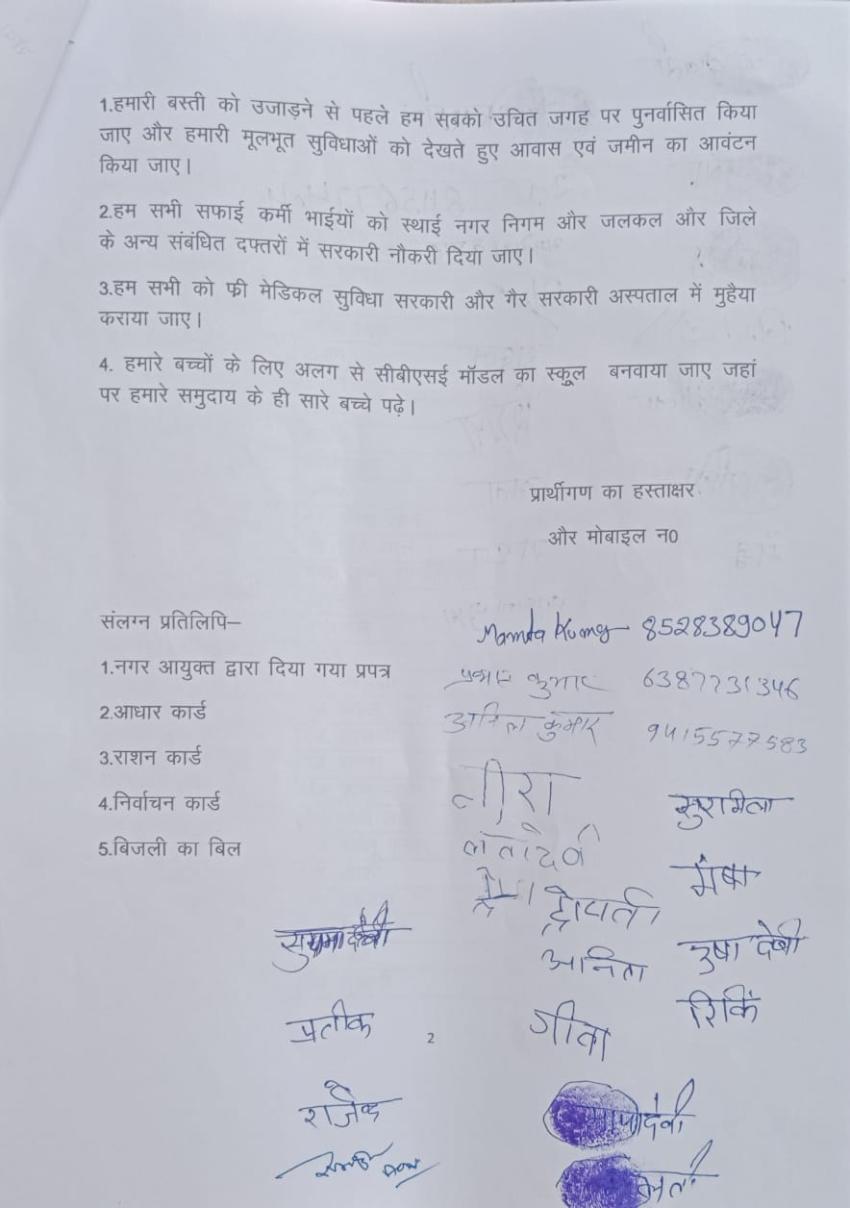 1.हमारी बस्ती को उजाड़ने से पहले हम सबको उचित जगह पर पुनर्वासित किया
जाए और हमारी मूलभूत सुविधाओं को देखते हुए आवास एवं जमीन का आवंटन
किया जाए।
2.हम सभी सफाई कर्मी भाईयों को स्थाई नगर निगम और जलकल और जिले
के अन्य संबंधित दफ्तरों में सरकारी नौकरी दिया जाए।
3.हम सभी को फ्री मेडिकल सुविधा सरकारी और गैर सरकारी अस्पताल में मुहैया
कराया जाए।
4. हमारे बच्चों के लिए अलग से सीबीएसई मॉडल का स्कूल बनवाया जाए जहां
पर हमारे समुदाय के ही सारे बच्चे पढ़े।
प्रार्थीगण का हस्ताक्षर
और मोबाइल न0
संलग्न प्रतिलिपि–
8528389047
1.नगर आयुक्त द्वारा दिया गया प्रपत्र
कुमार 6387731346
2.आधार कार्ड
अनिल कुमार 9415577583
3.राशन कार्ड
नीरा
4.निर्वाचन कार्ड
5.बिजली का बिल
उषा देवी
अनिता
रिंकि
प्रतीक
2
गीता
देवी